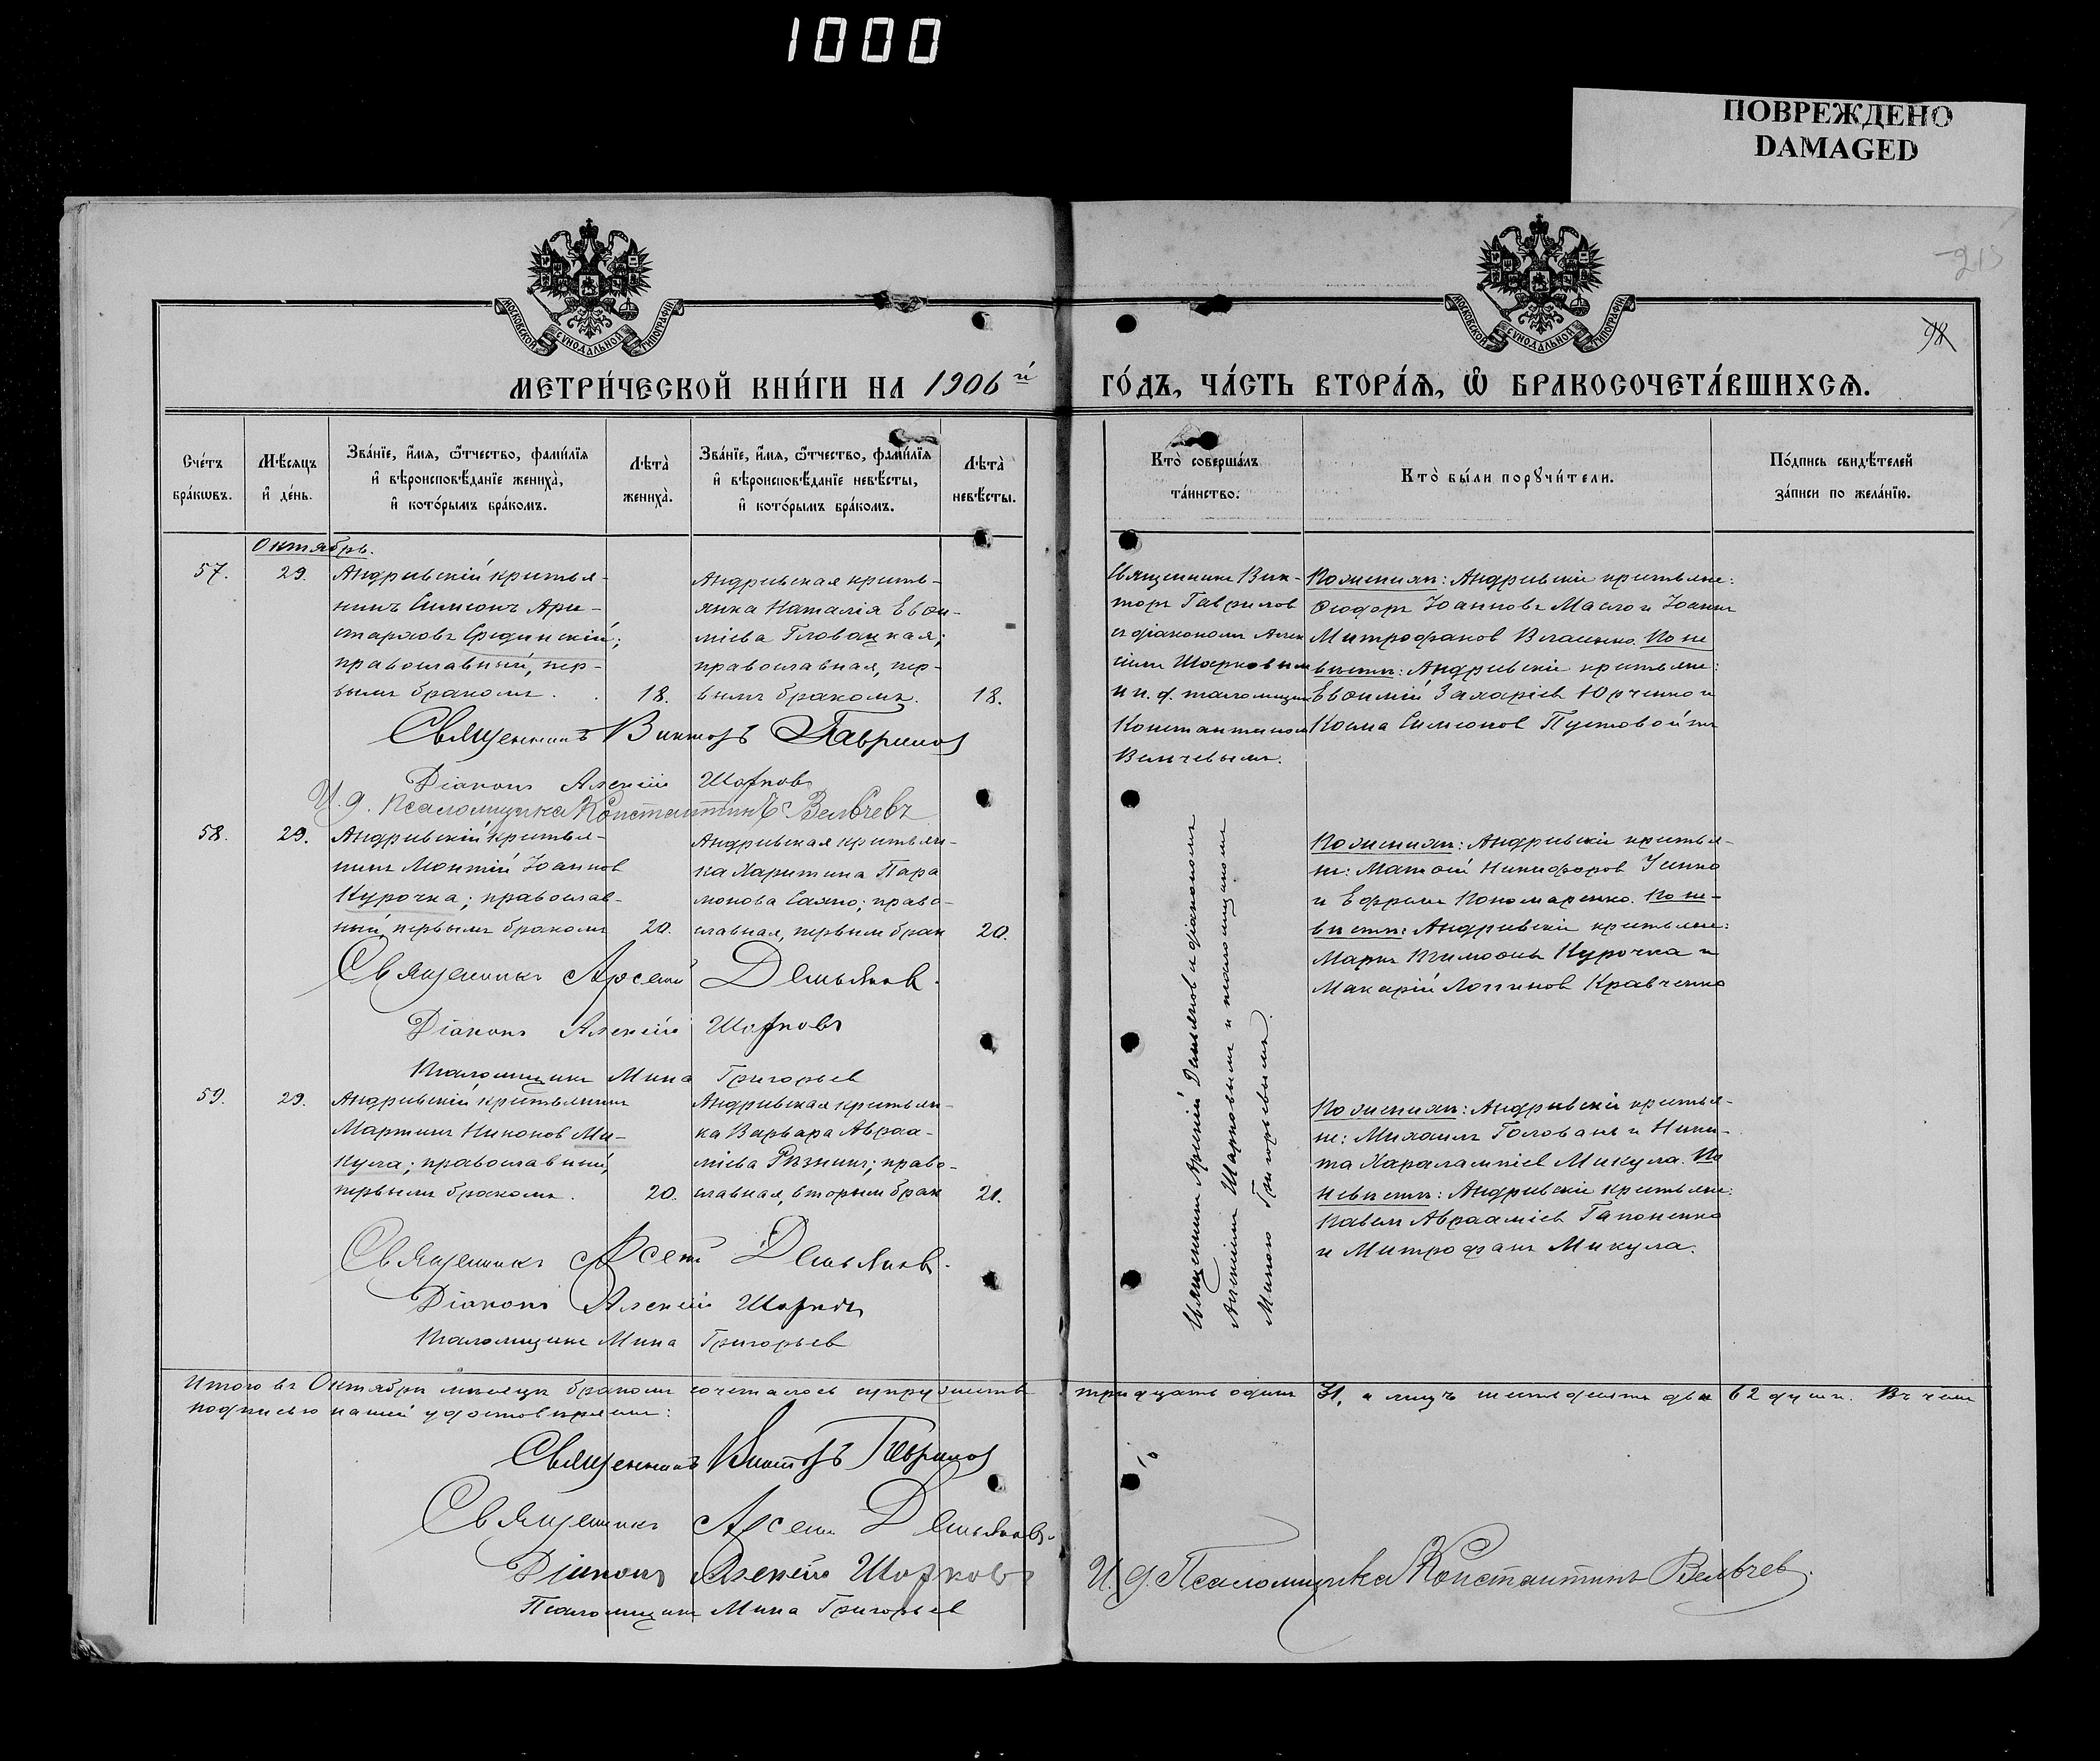 1000
ПОВРЕЖДЕНО
DAMAGED
215
98
МОСКОВСКОЙ СѴНОДАЛЬНОЙ ТИПОГРАФІИ
МОСКОВСКОЙ СѴНОДАЛЬНОЙ ТИПОГРАФІИ
МЕТРИ́ЧЕСКОЙ КНИ́ГИ НА 1906й ГО́ДЪ, ЧА́СТЬ ВТОРА́Я, Ѽ БРАКОСОЧЕТА́ВШИХСЯ.
Сче́тъ
бра́кѡвъ.
Мѣ́сяцъ
и҆ де́нь.
Зва́нїе, и҆́мя, ѻ҆́тчество, фамн́лїя
и҆ вѣроисповѣ́данїе жениха̀,
и҆ кото́рымъ бра́комъ.
Лѣта̀
жениха̀.
Зва́нїе, и҆́мя, ѻ҆́тчество, фами́лїя
и҆ вѣроисповѣ́данїе невѣ́сты,
и҆ кото́рымъ бра́комъ.
Лѣта̀
невѣ́сты.
Кто̀ соверша́лъ
та́инство.
Кто̀ бы́ли порꙋчи́тели.
По́дпись свидѣ́телей
за́писи по жела́нїю.
Октябрь.
57.
29.
Андреевскій крестья-
нинъ Симеонъ Ари-
старховъ Срединскій;
православный, пер-
вымъ бракомъ.
18.
Андреевская кресть-
янка Наталія Евѳи-
міева Гловацкая;
православная, пер-
вымъ бракомъ.
18.
Священникъ Вик-
торъ Гавриловъ
съ діакономъ Алек
сіемъ Шарковымъ
и и. д. псаломщика
Константиномъ
Вельчевымъ.
По женихѣ: Андреевскіе крестьяне:
Ѳеодоръ Іоанновъ Масло и Іоаннъ
Митрофановъ Власенко. По не
вѣстѣ: Андреевскіе крестьяне:
Евѳимій Захаріевъ Юрченко и
Косма Симеоновъ Пустовойтъ
Священникъ Викторъ Гавриловъ
Діаконъ Алексій Шарковъ
И. д. Псаломщика Константинъ Вельчевъ
58.
29.
Андреевскій крестья-
нинъ Леонтій Іоанновъ
Курочка; православ-
ный, первымъ бракомъ
20.
Андреевская крестьян-
ка Харитина Пара
монова Сахно; право-
славная, первымъ брак
20.
Священникъ Арсеній Демьяновъ и діакономъ
Алексіемъ Шарковымъ и псаломщикомъ
Миною Григорьевымъ.
По женихѣ: Андреевскіе крестья-
не: Матѳій Никифоровъ
и Ефремъ Пономаренко. По не-
вѣстѣ: Андреевскіе крестьяне:
Маркъ Тимоѳеевъ Курочка и
Макарій Логгиновъ Кравченко
Священникъ Арсеній Демьяновъ.
Діаконъ Алексій Шарковъ
Псаломщикъ Мина Григорьевъ
59.
29.
Андреевскій крестьянинъ
Мартинъ Никоновъ Ми-
кула; православный,
первымъ бракомъ.
20.
Андреевская крестьян-
ка Варвара Авраа-
міева Рѣзникъ; право-
славная, вторымъ брак
21.
По женихѣ: Андреевскіе крестья-
не: Михаилъ Головань и Ники-
та Харалампіевъ Микула. По
невѣстѣ: Андреевскіе крестьяне:
Павелъ Авраамієвъ Гапоненко
и Митрофанъ Микула.
Священникъ Арсеній Демьяновъ.
Діаконъ Алексій Шарковъ
Псаломщикъ Мина Григорьевъ
Итого въ Октябрѣ мѣсяцѣ бракомъ сочеталось супружествъ тридцать одинъ 31, а лицъ шестьдесятъ два 62 души. Въ чемъ
подписью нашей удостовѣряемъ:
Священникъ Викторъ Гавриловъ
Священникъ Арсеній Демьяновъ.
Діаконъ Алексій Шарковъ
И. д. Псаломщика Константинъ Вельчевъ.
Псаломщикъ Мина Григорьевъ